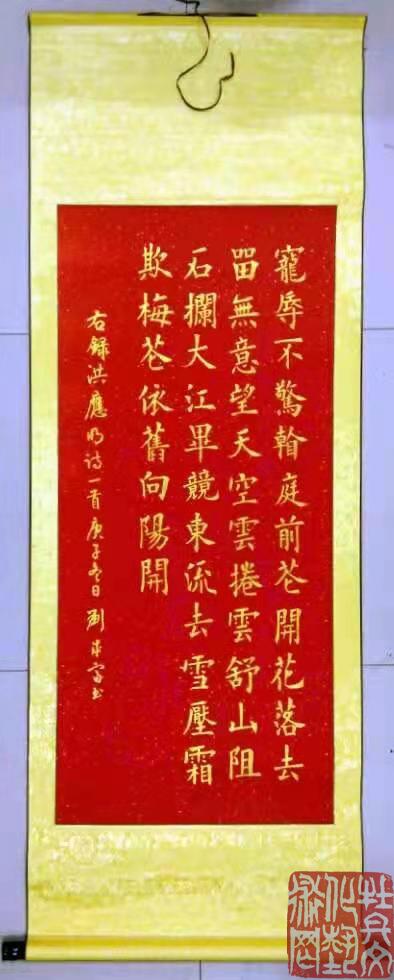 寵辱不驚翰庭前花開花落去
留無意望天空雲捲雲舒山阻
石攔大江畢競東流去雪壓霜
欺梅花依舊向陽開
右錄洪應明诗一首庚子冬日劉富书